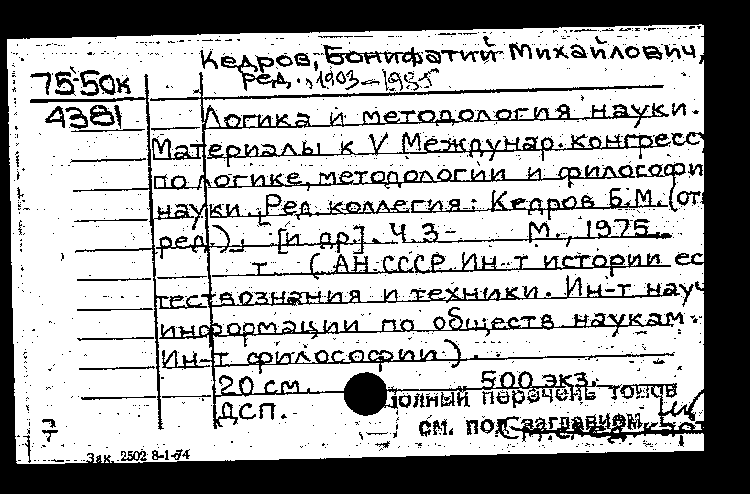 Кедров, Бонифатий Михайлович,
75-50к ред., 1903-1985
4381 Логика и методология науки.
Материалы к V Междунар. конгрессу
по логике, методологии и философи
науки. Ред. коллегия: Кедров Б.М. (отв
ред.), [и др]. Ч.3- М., 1975.
т (АН СССР. Ин-т истории ес
тествознания и техники. Ин-т науч
информации по обществ наукам.
Ин-т философии).
20 см. 500 экз.
ДСП. Полный перечень томов
см. под заглавием
Зак. 2502 8-1-74